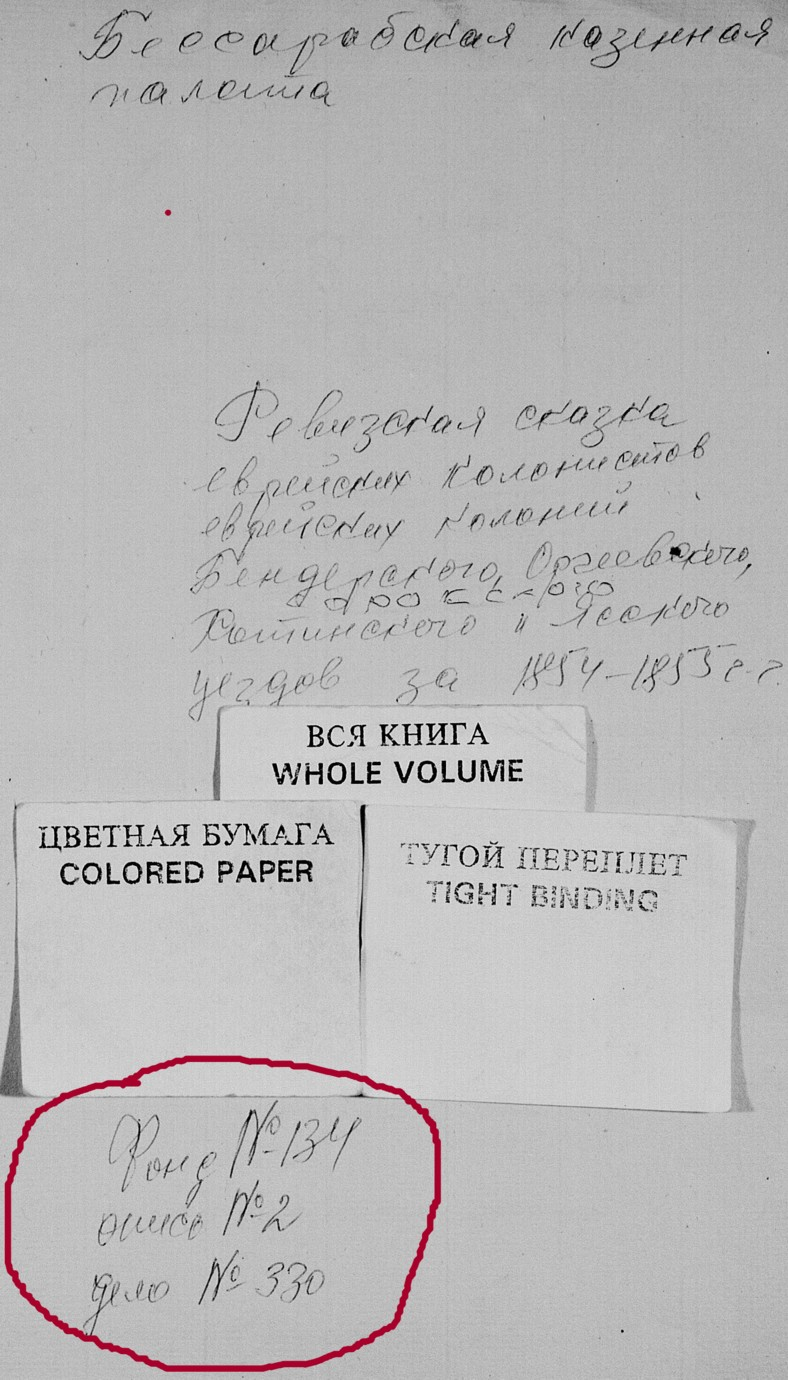 Бессарабская казенная
палата
Ревизская сказка
еврейских колонистов
еврейских колоний
Бендерского, Оргеевского,
Сорокского
Хотинского и Ясского
уездов за 1854-1855 г.г.
ВСЯ КНИГА
WHOLE VOLUME
ЦВЕТНАЯ БУМАГА
COLORED PAPER
ТУГОЙ ПЕРЕПЛЕТ
TIGHT BINDING
Фонд №134
опись №2
дело № 330